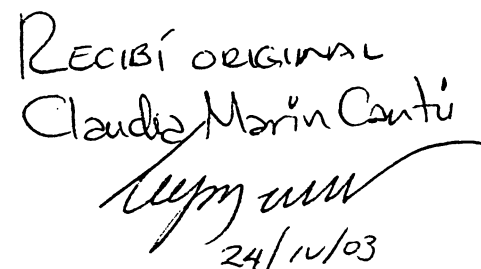 RECIBÍ ORIGINAL
Claudia Marín Cantú
24/IV/03